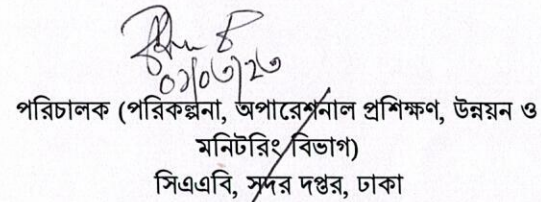 ০১/০৩/২৩
পরিচালক (পরিকল্পনা, অপারেশনাল প্রশিক্ষণ, উন্নয়ন ও
মনিটরিং বিভাগ)
সিএএবি, সদর দপ্তর, ঢাকা